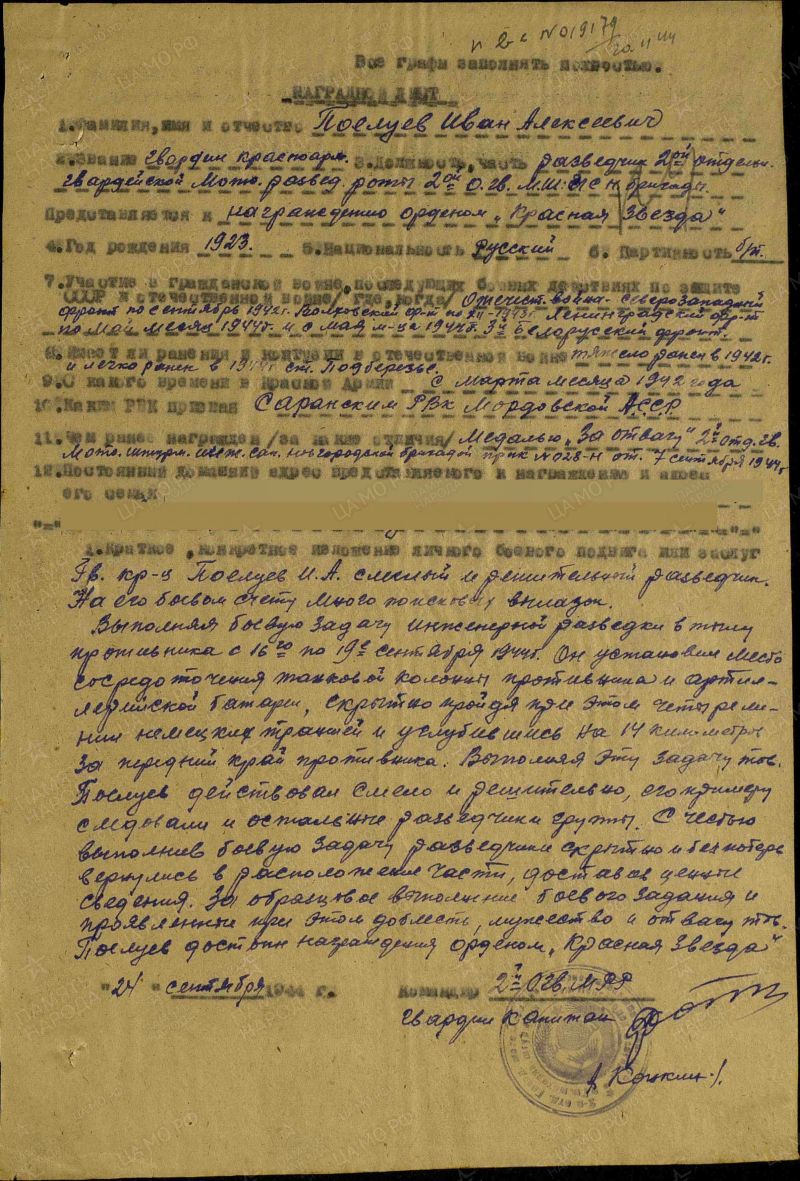 № 019179
Все графы заполнять полностью.
НАГРАДНОЙ ЛИСТ
1.Фамилия,имя и отчество Поелуев Иван Алексеевич
2.Звание гвардии красноарм. 3.Должность,часть разведчик 2ой отдельн.
гвардейской Мото.развед.роты 2ой О.гв.М.Ш.И.С.Н.бригады.
Представляется к награждению орденом „Красная Звезда"
4.Год рождения 1923. 5.Национальность Русский 6. Партийность б/п.
7.Участие в гражданской войне,последующих боевых действиях по защите
СССР и отечественной войне/ где,когда/ Отечест. война - северозападный
фронт по сентябрь 1942г. Волховский фр-т по 1943г. Ленинградский фр-т
по Май месяц 1944г. и с Мая м-ца 1944г. 3й Белорусский фронт.
8.Имеет ли ранения и контузии в отечественной войне тяжело ранен в 1942г.
и легко ранен в 1944г. ст. Подберезье.
9.С какого времени в Красной Армии с марта месяца 1942 года
10.Каким РВК призван Саранским РВк Мордовской АССР
11.Чем ранее награжден /за какие отличия/ Медалью „За отвагу" 2й отд.гв.
Мото.штурм. инж.сап. новгородской бригадой пр. № 028-Н от. 7 сентября 1944г
12.Постоянный домашний адрес представляемого к награждению и адрес
его семьи
1.Краткое ,конкретное изложение личного боевого подвига или заслуг
Гв. кр-ц Поелуев И.А. смелый и решительный разведчик.
На его боевом счету много поисковых вылазок.
Выполняя боевую задачу инженерной разведки в тылу
противника с 16го по 19е сентября 1944г. Он установил место
сосредоточения танковой колонны противника и артил-
лерийской батареи, скрытно пройдя при этом четыре ли-
нии немецких траншей и углубившись на 14 километров
за передний край противника. Выполняя эту задачу тов.
Поелуев действовал смело и решительно, его примеру
следовали и остальные разведчики группы. С честью
выполнив боевую задачу разведчики скрытно и без потерь
вернулись в расположение части, доставив ценные
сведения. За образцовое выполнение боевого задания и
проявленные при этом доблесть, мужество и отвагу тов.
Поелуев достоин награждения орденом „Красная Звезда"
"24" сентября 1944 г. Командир 2й О.гв.М.РР
гвардии капитан